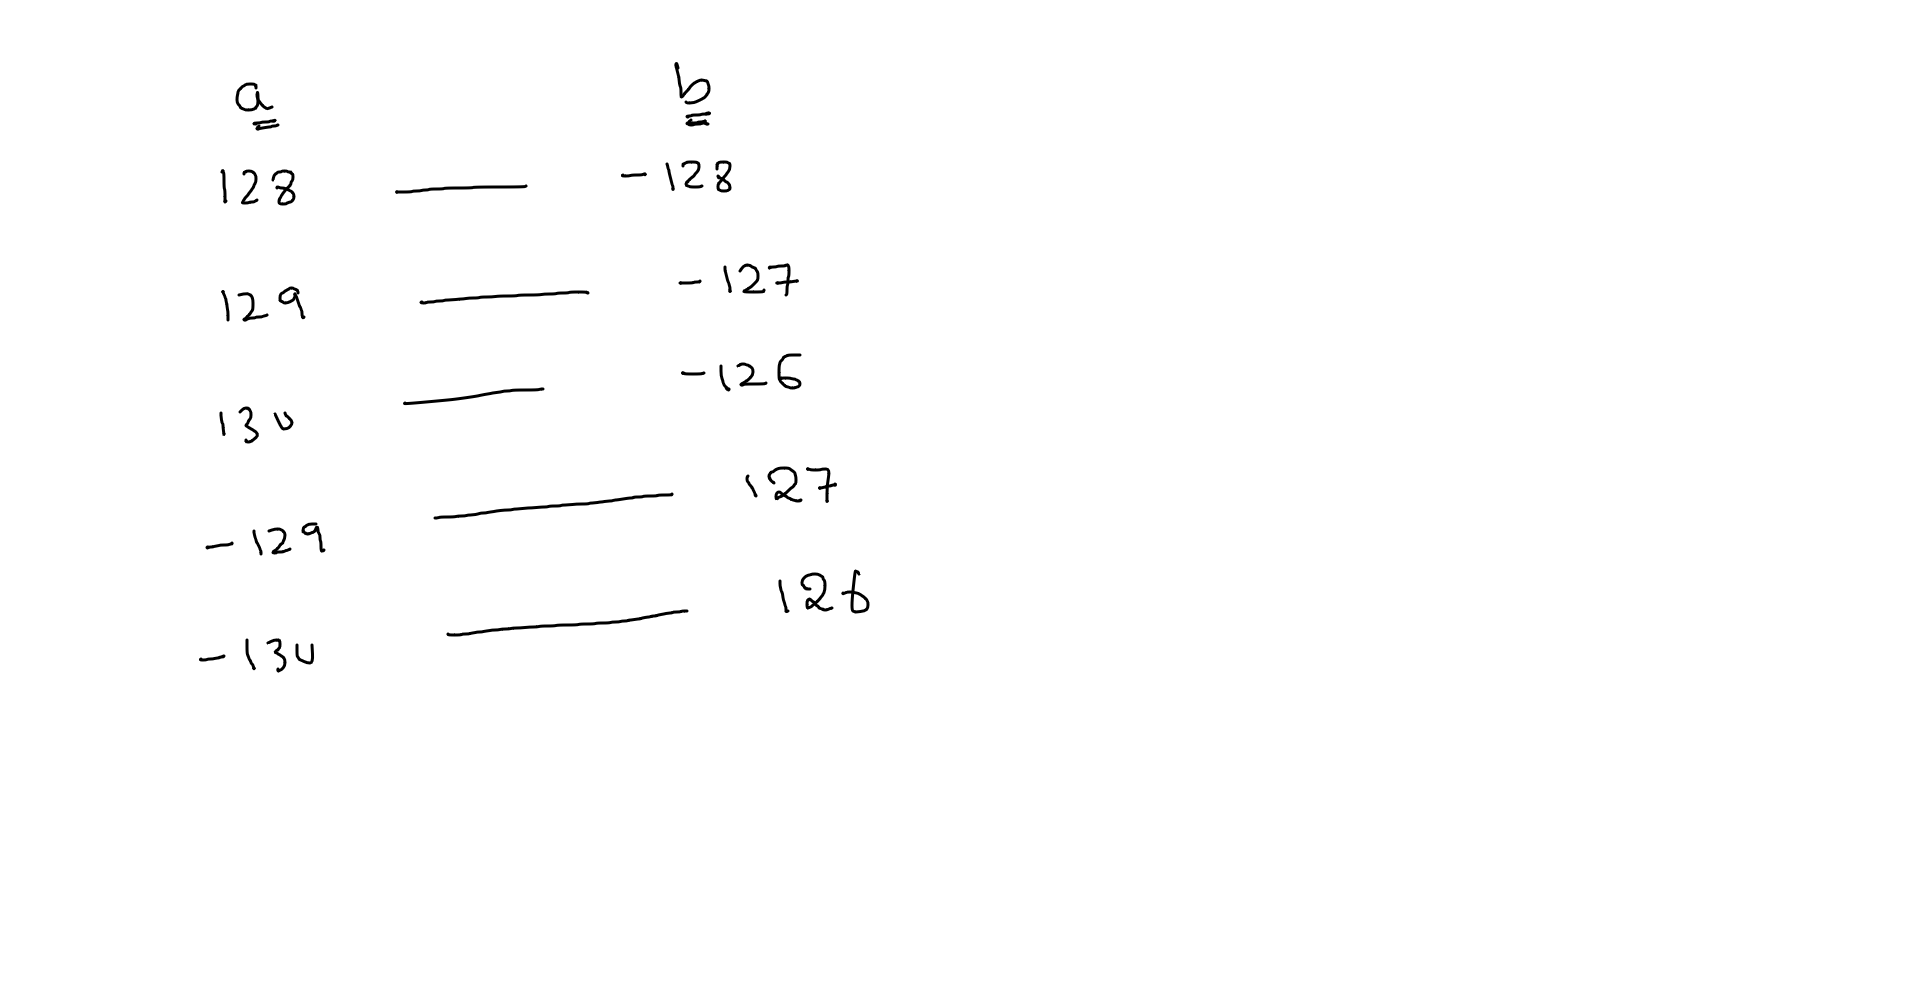 a b
128 — -128
129 — -127
130 — -126
-129 — 127
-130 — 126